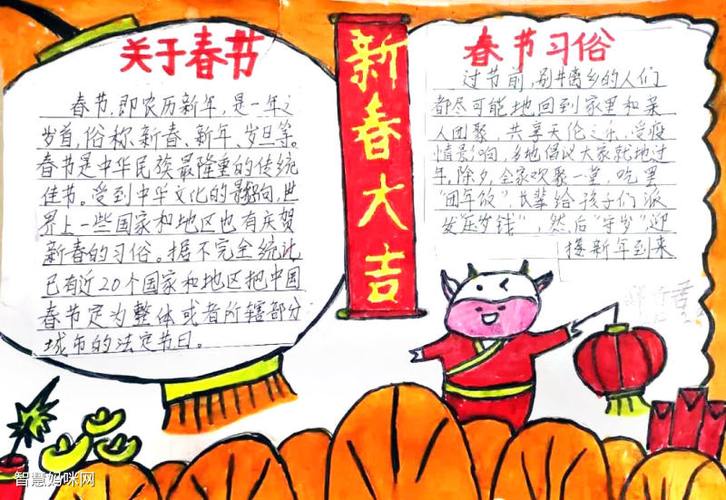 关于春节
春节,即农历新年,是一年之
岁首,俗称、新春、新年、岁旦等。
春节是中华民族最隆重的传统
佳节。受到中华文化的影响,世
界上一些国家和地区也有庆贺
新春的习俗。据不完全统计
已有近20个国家和地区把中国
春节定为整体或者所辖部分
城市的法定节日。
新春大吉
春节习俗
过节前,别井离乡的人们
都尽可能地回到家里和亲
人团聚,共享天伦之乐,受疫
情影响,各地倡议大家就地过
年,除夕,全家欢聚一堂,吃罢
"团年饭",长辈给孩子们派
发压岁钱",然后"守岁"迎
接新年到来
智慧妈咪网